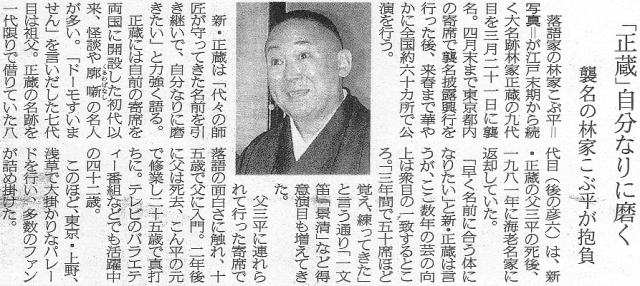 「正蔵」自分なりに磨く
襲名の林家こぶ平が抱負
落語家の林家こぶ平＝
写真＝が江戸末期から続
く大名跡林家正蔵の九代
目を三月二十一日に襲
名。四月末まで東京都内
の寄席で襲名披露興行を
行った後、来春まで華や
かに全国約六十カ所で公
演を行う。
新・正蔵は「代々の師
匠が守ってきた名前を引
き継いで、自分なりに磨
きたい」と力強く語る。
正蔵には自前の寄席を
両国に開設した初代以
来、怪談や廓噺の名人
が多い。「ドーモすいま
せん」を言いだした七代
目は祖父。正蔵の名跡を
一代限りで借りていた八
代目（後の彦六）は、新
・正蔵の父三平の死後、
一九八一年に海老名家に
返却していた。
「早く名前に合う体に
なりたい」と新・正蔵は言
うが、ここ数年の芸の向
上は衆目の一致するとこ
ろ。「三年間で五十席ほど
覚え、練ってきた」
と言う通り「一文
笛」「景清」など得
意演目も増えてき
た。
父三平に連れら
れて行った寄席で
落語の面白さに触れ、十
五歳で父に入門。二年後
に父は死去、こん平の元
で修業し二十五歳で真打
ちに。テレビのバラエテ
ィー番組などでも活躍中
の四十二歳。
このほど東京・上野、
浅草で大掛かりなパレー
ドを行い、多数のファン
が詰め掛けた。